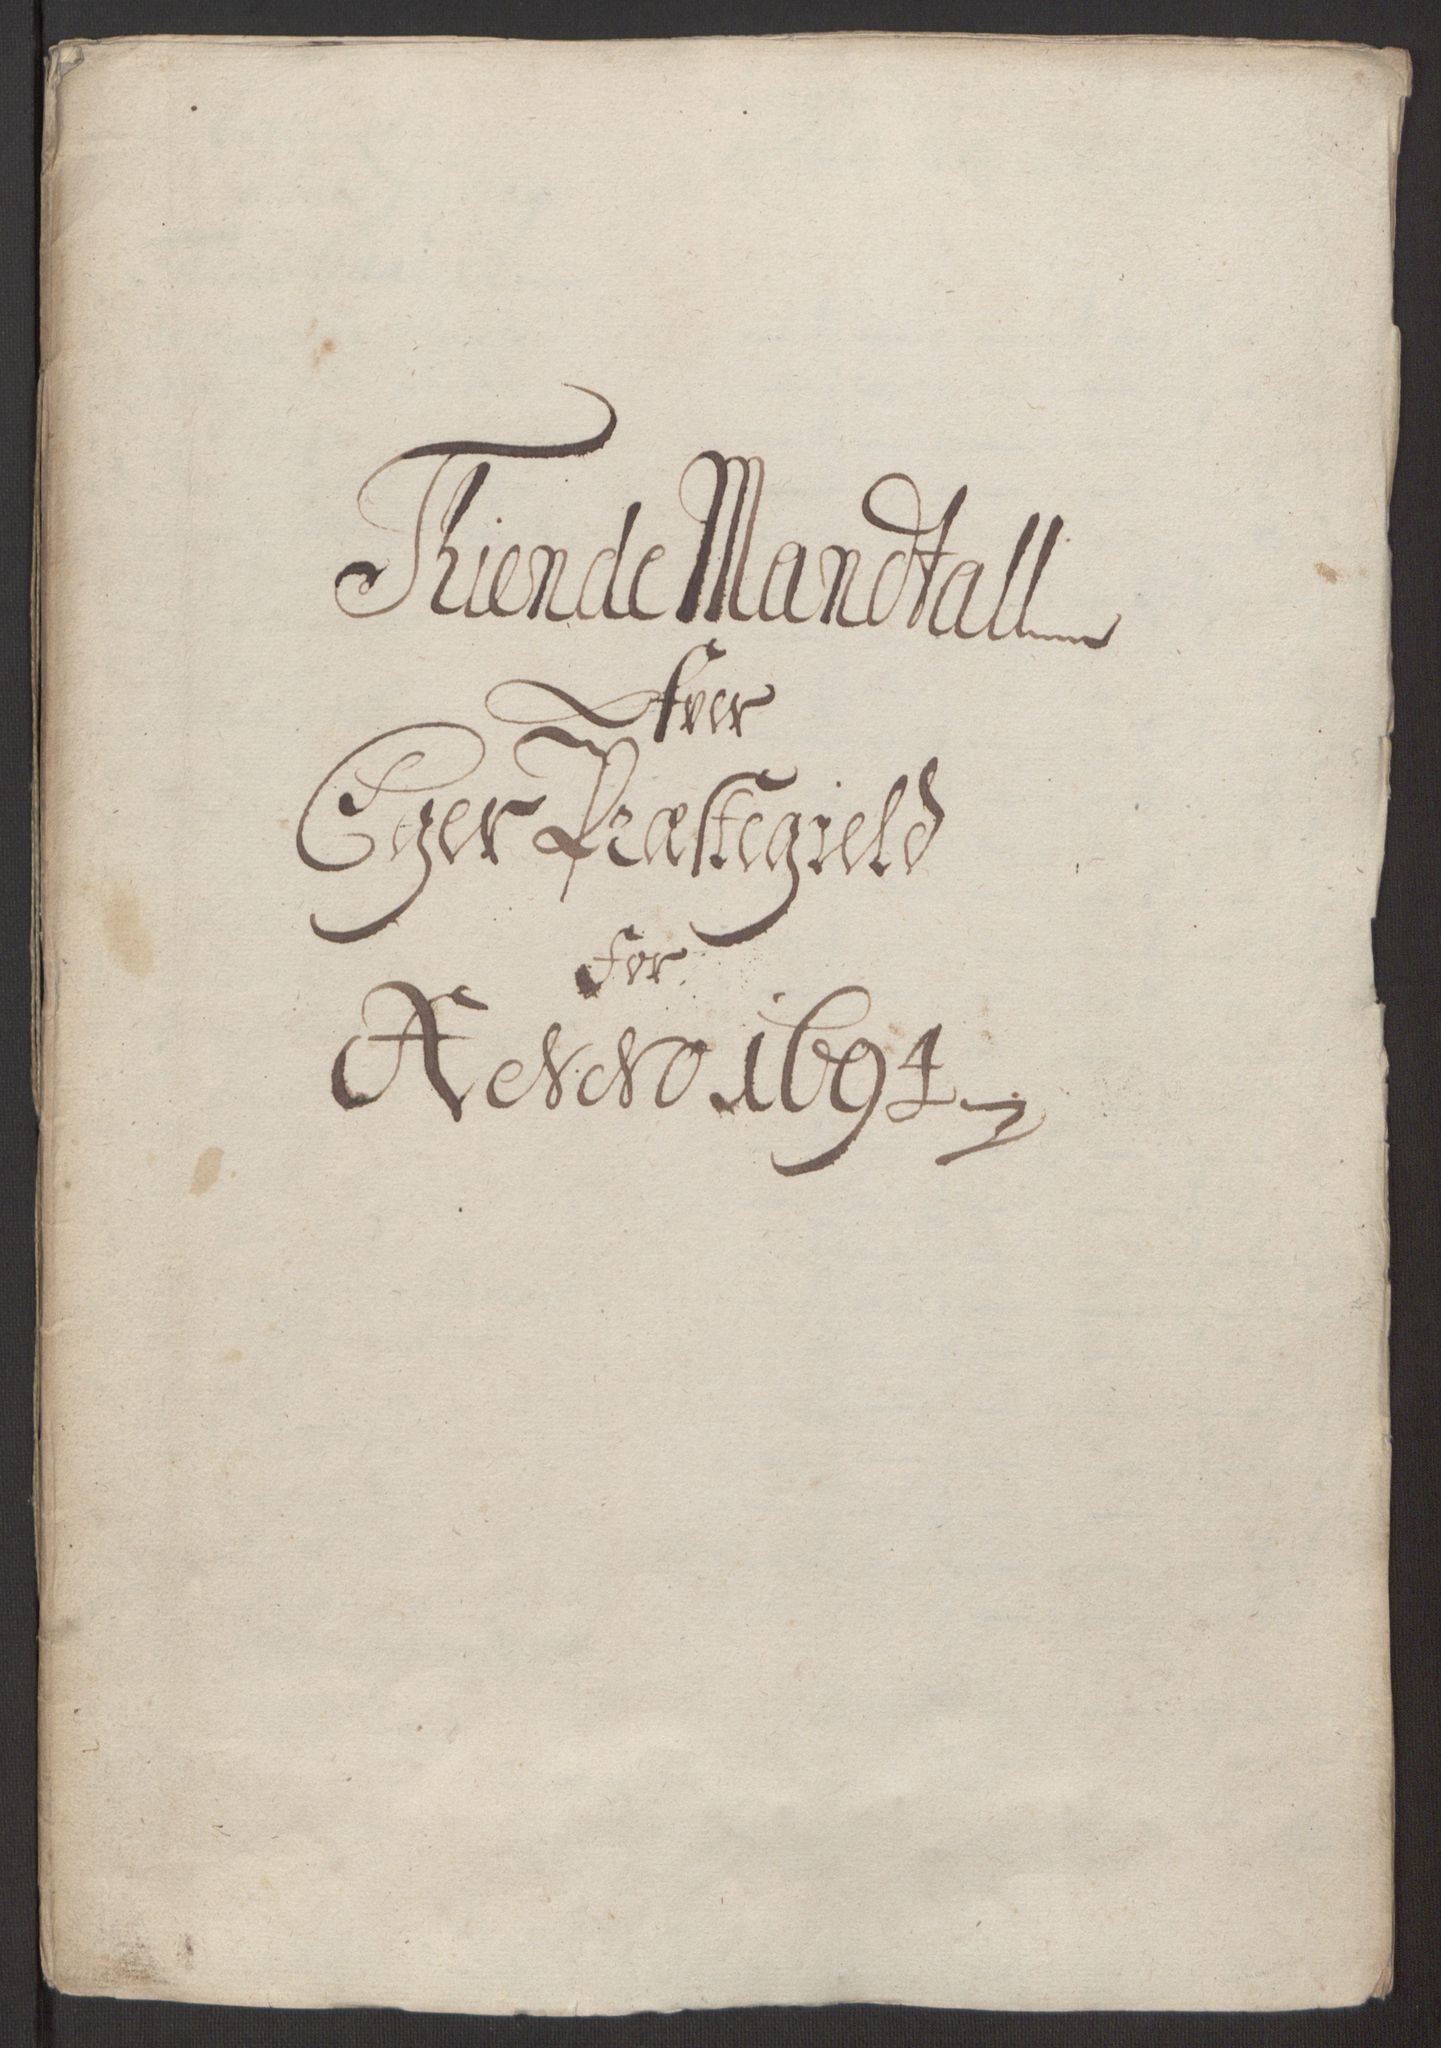 Thiende Mandtall
Over
Eger Præstegield
for
Anno 1694